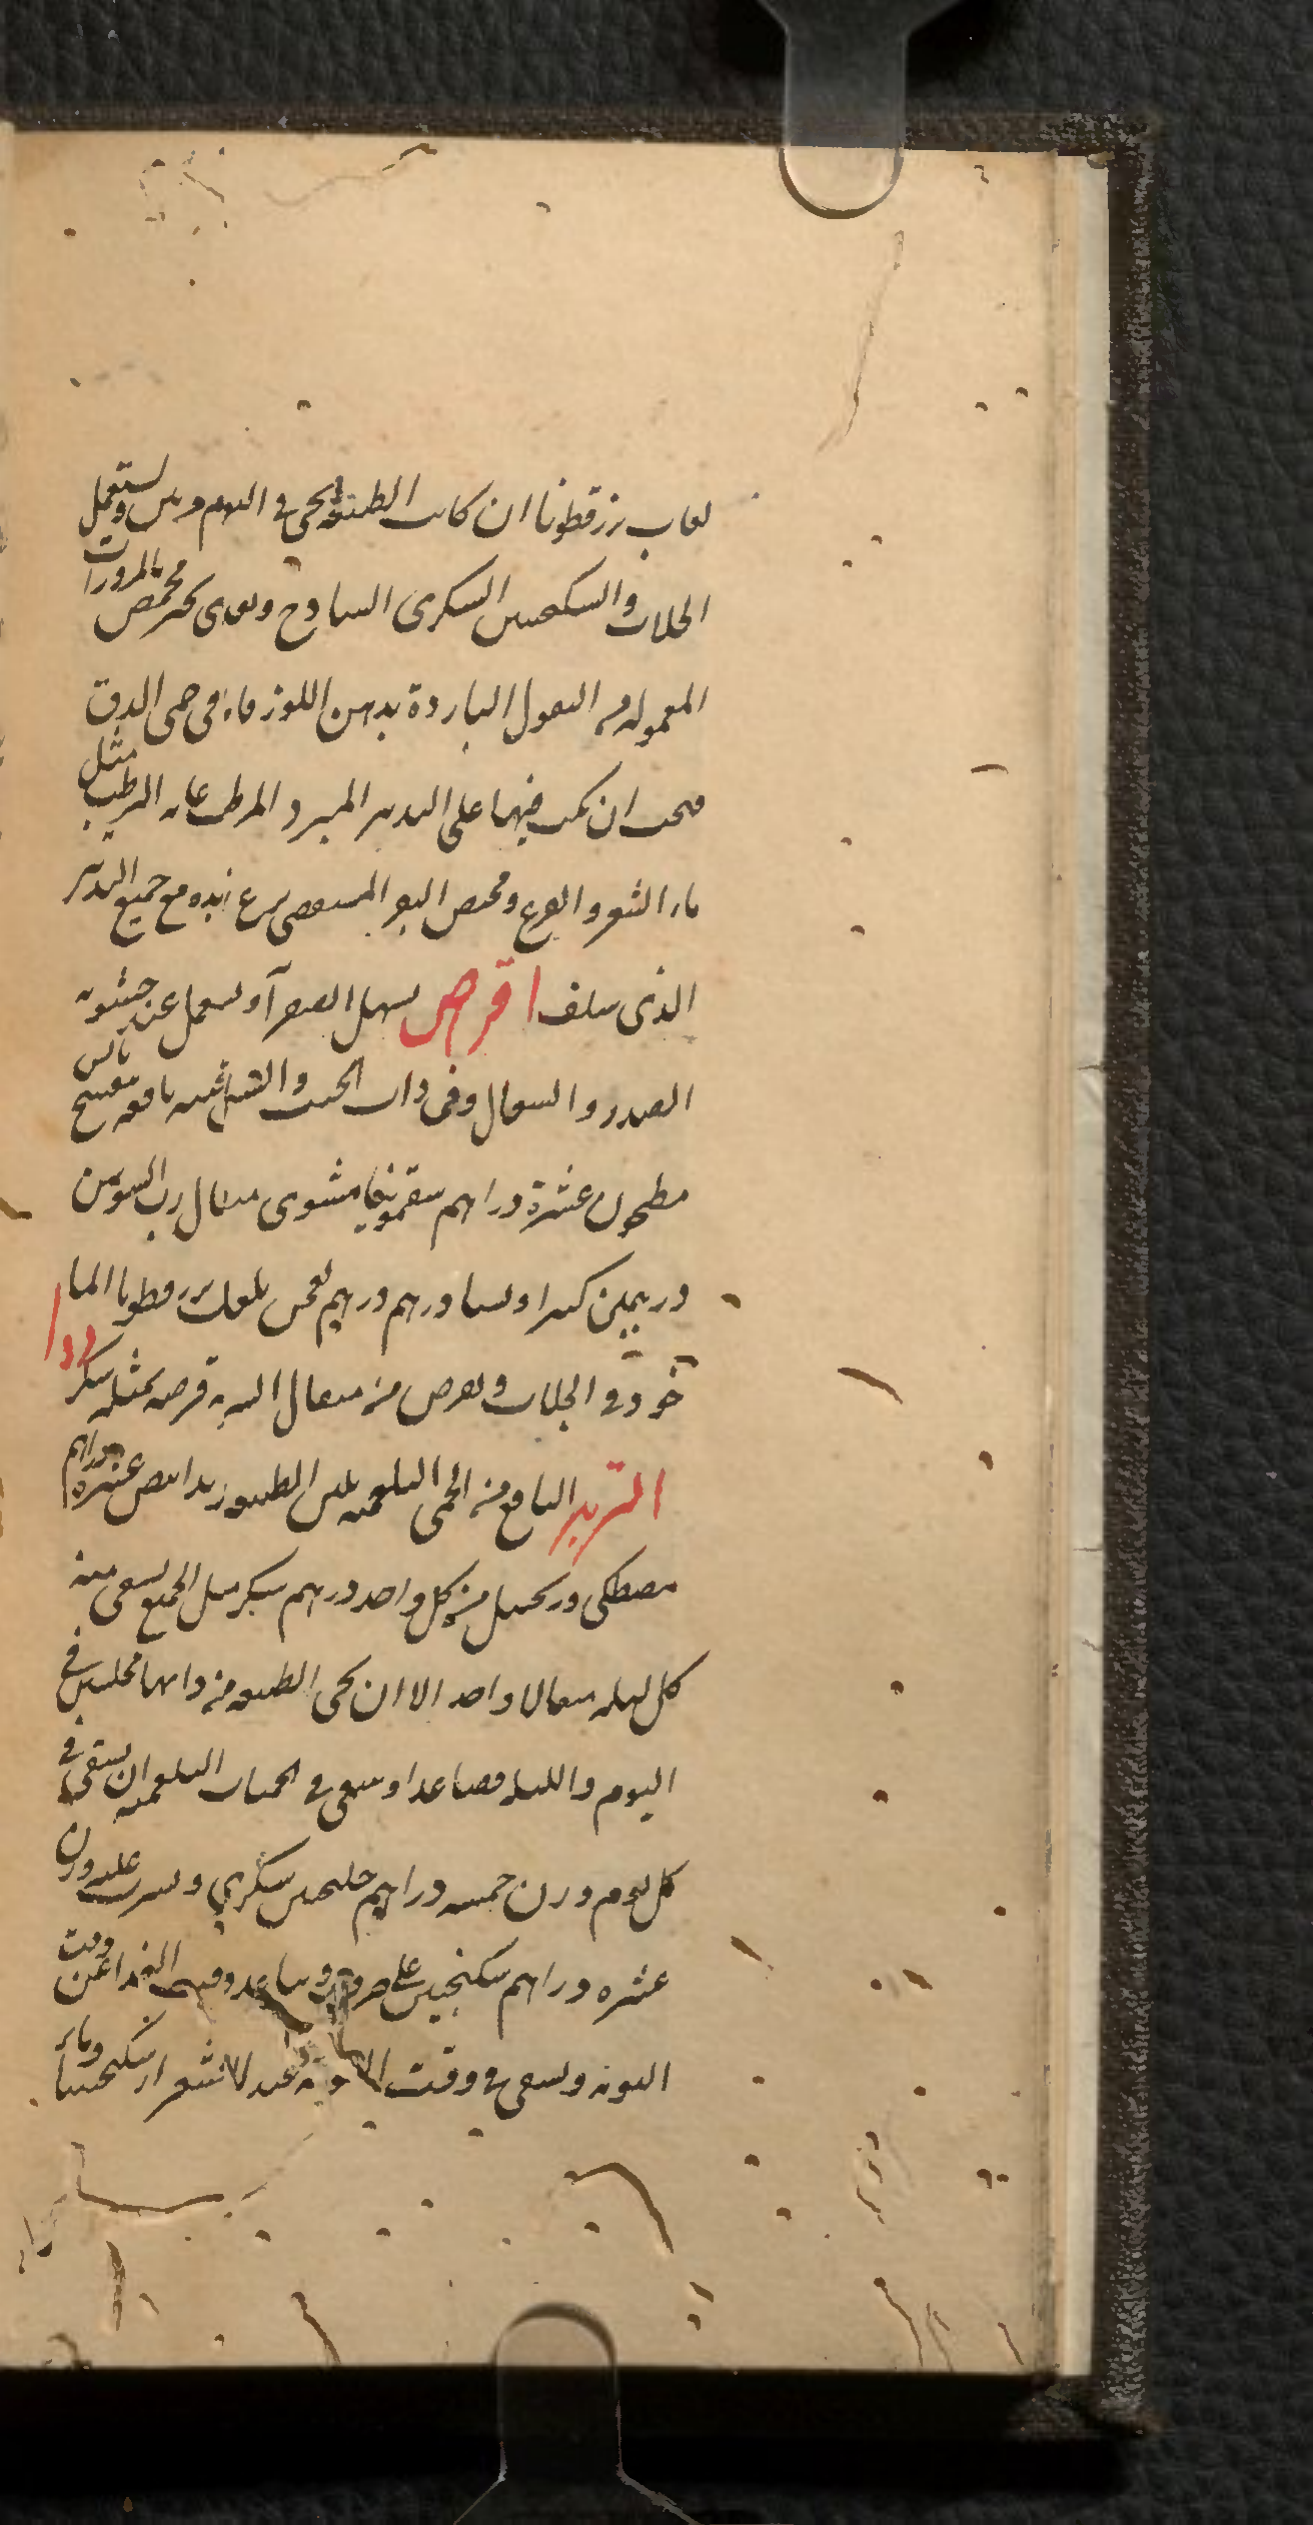 لعاب بزرقطونا ان كانت الطبيعة تجى فى اليوم مرتين ويستعمل
الجلاب والسكنجبين السكرى الساذج ويغذى بخبز محمص بالمزورات
المعموله من البقول الباردة بدهن اللوز فاما فى حمى الدق
فيجب ان يكب فيها على التدبير المبرد المرطب غاية الترطيب مثل
ماء الشعير والقرع ومخيض البقر المستقصى نزع زبده مع جميع التدبير
الذى سلف قرص يسهل الصفرآ ويستعمل عند خشونة
الصدر والسعال وفى ذات الجنب بنفسج يابس
مطحون عشرة دراهم سقمونيا مشوى مثقال رب السوس
درهمين كثيرا ونشا درهم درهم يعجن بلعاب بزرقطونا الما
خوذ فى الجلاب ويقرص من مثقال الشربة قرصه بمثله سكر
التربد النافع من الحمى البلغميه بلين الطبيعه تربد ابيض عشرة دراهم
مصطكى وزنجبيل من كل واحد درهم سكر مثل الجميع يسقى منه
كل ليله مثقالا واحد الا ان تجى الطبيعه من ذاتها مجلسين فى
اليوم والليله فصاعدا وينبغى فى الحميات البلغميه ان يسقى فى
كل يوم وزن خمسه دراهم جلنجبين سكرى ويشرب عليه وزن
عشره دراهم سكنجبين على الغدا عن وقت
النوبه ويسقى فى وقت عند الاقشعرار سكنجبينا وماء